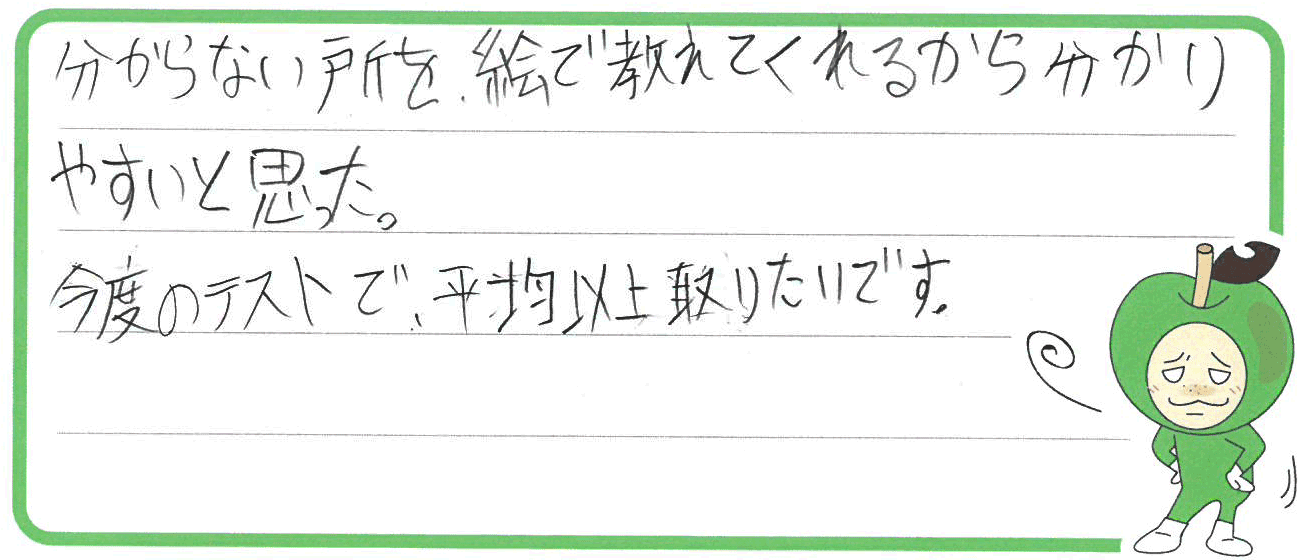 分からない所を、絵で教えてくれるから分かり
やすいと思った。
今度のテストで、平均以上取りたいです。